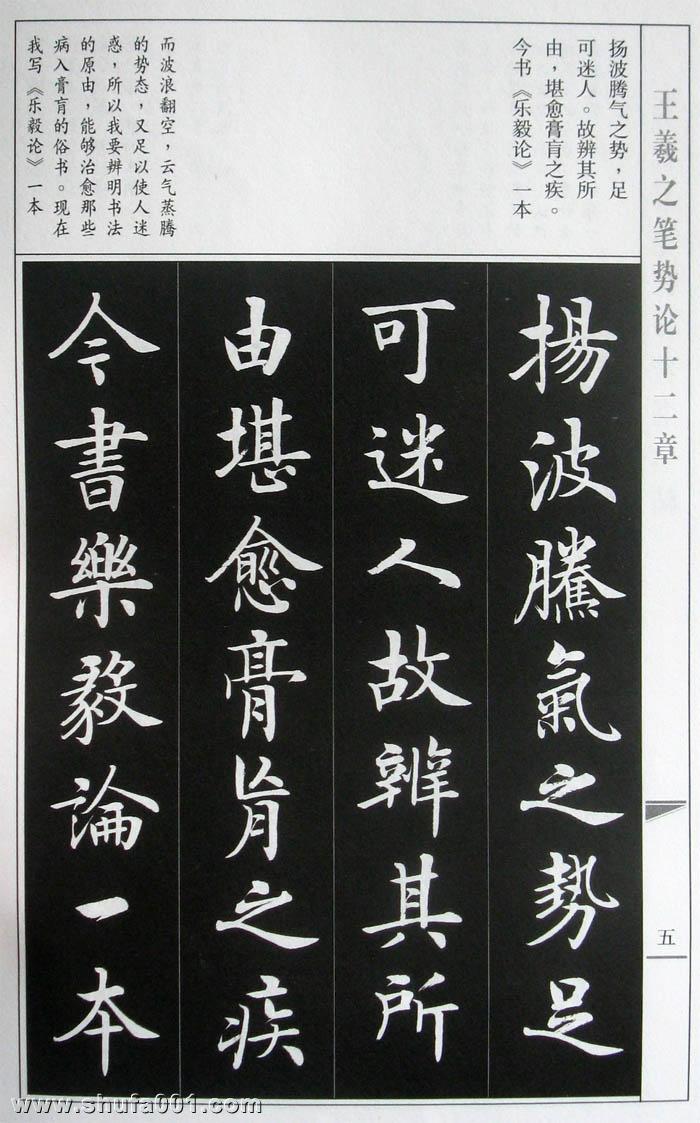 王羲之笔势论十二章
五
扬波腾气之势，足
可迷人。故辨其所
由，堪愈膏肓之疾。
今书《乐毅论》一本
而波浪翻空，云气蒸腾
的势态，又足以使人迷
惑，所以我要辨明书法
的原由，能够治愈那些
病入膏肓的俗书。现在
我写《乐毅论》一本
揚波騰氣之勢足
可迷人故辨其所
由堪愈膏肓之疾
今書樂毅論一本
www.shufa001.com